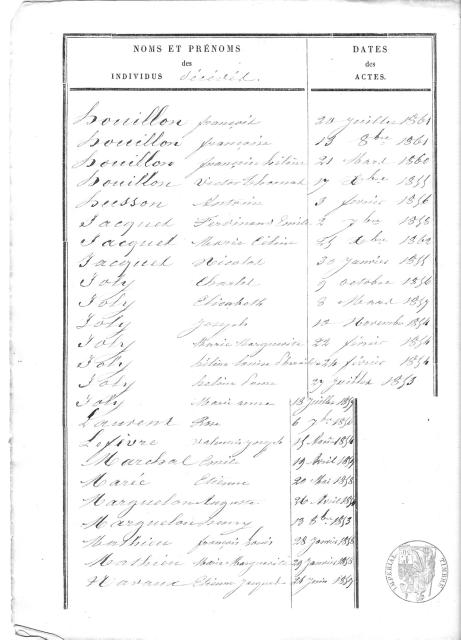 NOMS ET PRÉNOMS
des
INDIVIDUS décédés.
DATES
des
ACTES.
houillon françois 20 juillet 1861
houillon françoise 13 8bre 1861
houillon françoise 21 Mars 1860
houillon Victor 17 Xbre 1855
husson Antoine 3 février 1856
Jacquet Ferdinand Emile 2 7bre 1858
Jacquet Marie Céline 25 Xbre 1860
Jacquel Nicolas 30 janvier 1855
Joly Charles 9 octobre 1856
Joly Elisabeth 8 Mars 1857
Joly Joseph 12 Novembre 1854
Joly Marie Marguerite 22 février 1854
Joly 24 février 1854
Joly 27 juillet 1853
Joly Marie anne 18 juillet 1859
Laurent Rose 6 7bre
Lefèvre joseph 15
Marchal Emile 19 Avril
Marié Etienne 20 Mai 1858
Marguelon Auguste 26 Avril
Marguelon 13 8bre 1853
Mathieu françois Louis 28 janvier 1858
Mathieu Marie Marguerite 29 janvier 1858
Navaux Etienne Jacques 26 1859
TIMBRE
IMPÉRIAL